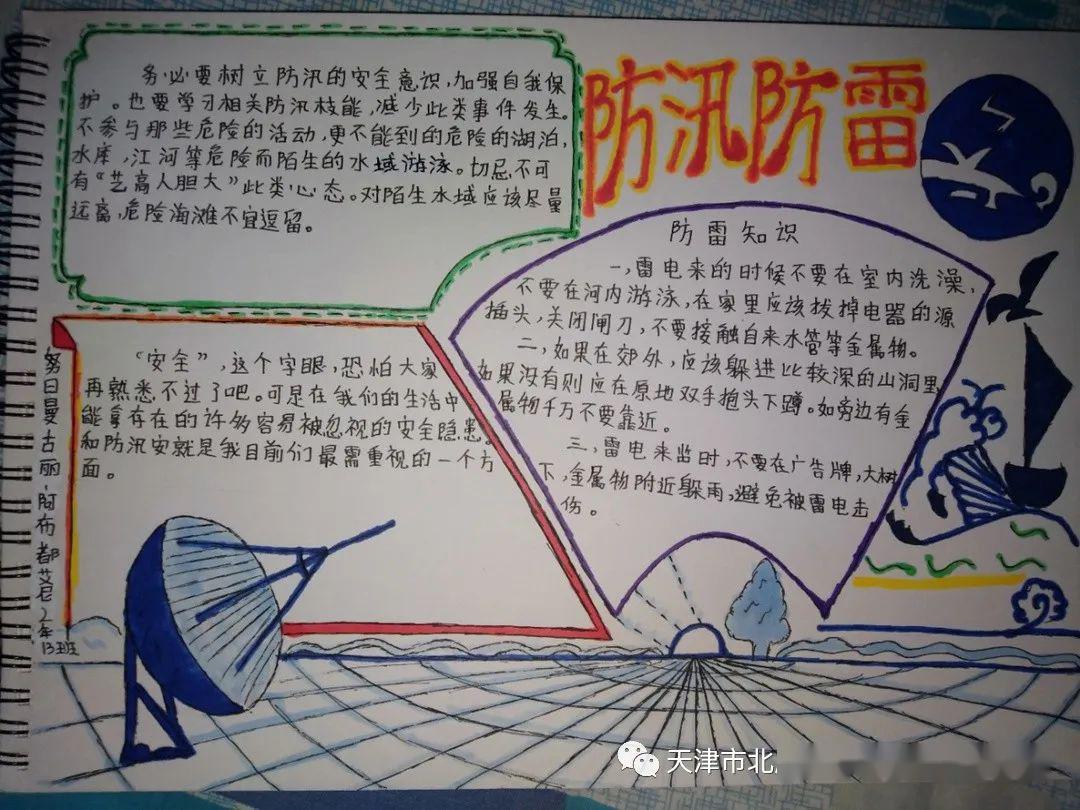 防汛防雷
务必要树立防汛的安全意识,加强自我保
护。也要学习相关防汛技能,减少此类事件发生。
不参与那些危险的活动,更不能到的危险的湖泊,
水库,江河等危险而陌生的水域游泳。切忌不可
有“艺高人胆大”此类心态。对陌生水域应该尽量
远离,危险海滩不宜逗留。
防雷知识
一,雷电来的时候不要在室内洗澡,
不要在河内游泳,在家里应该拔掉电器的源
插头,关闭闸刀,不要接触自来水管等金属物。
二,如果在郊外,应该躲进比较深的山洞里
如果没有则应在原地双手抱头下蹲。如旁边有金
属物千万不要靠近。
三,雷电来监时,不要在广告牌,大树
下,金属物附近躲雨,避免被雷电击
伤。
“安全”,这个字眼,恐怕大家
再熟悉不过了吧。可是在我们的生活中
能存在的许多容易被忽视的安全隐患。
和防汛安就是我目前们最需重视的一个方
面。
努日曼古丽·阿布都艾尼2年
13班
天津市北